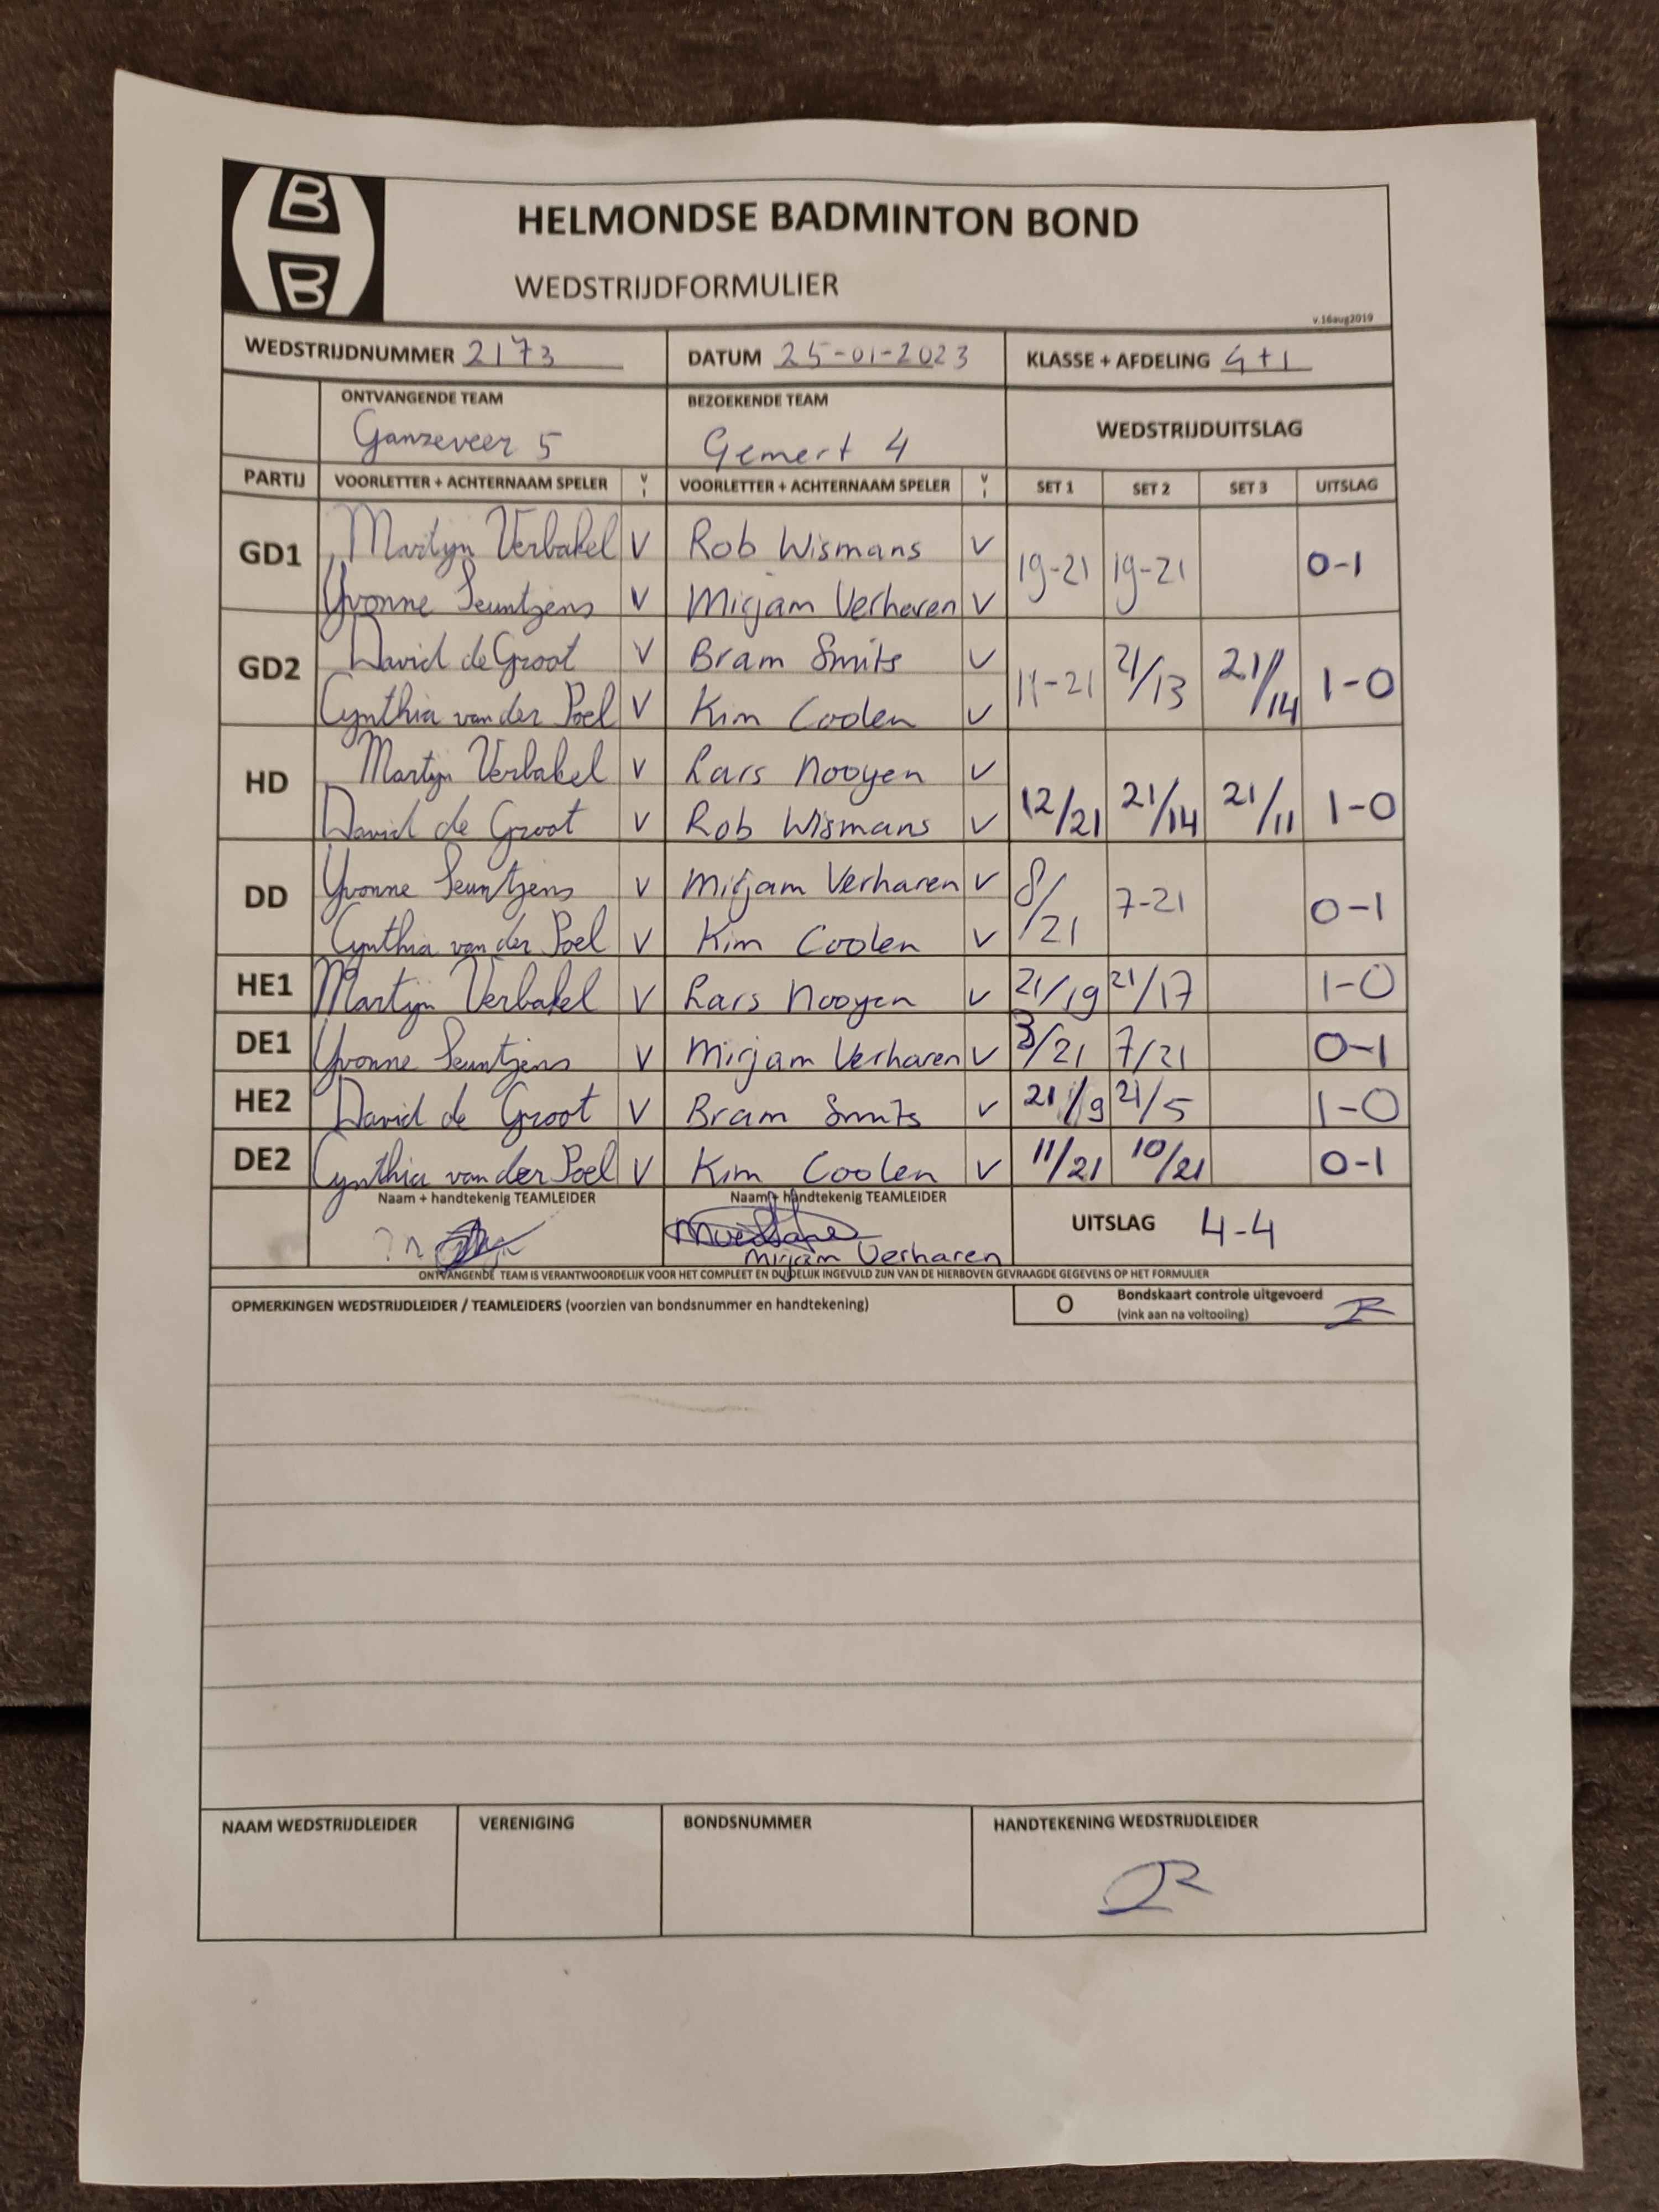 B
B
HELMONDSE BADMINTON BOND
WEDSTRIJDFORMULIER
v.16aug2019
WEDSTRIJDNUMMER 2173 DATUM 25-01-2023 KLASSE + AFDELING 4+1
ONTVANGENDE TEAM BEZOEKENDE TEAM WEDSTRIJDUITSLAG
Ganzeveer 5 Gemert 4
PARTIJ VOORLETTER + ACHTERNAAM SPELER V I VOORLETTER + ACHTERNAAM SPELER V I SET 1 SET 2 SET 3 UITSLAG
GD1 Martijn Verbakel V Rob Wismans V 19-21 19-21 0-1
Yvonne Seuntjens V Mirjam Verharen V
GD2 David de Groot V Bram Smits V 11-21 21/13 21/14 1-0
Cynthia van der Poel V Kim Coolen V
HD Martijn Verbakel V Lars Nooyen V 12/21 21/14 21/11 1-0
David de Groot V Rob Wismans V
DD Yvonne Seuntjens V Mirjam Verharen V 8/21 7-21 0-1
Cynthia van der Poel V Kim Coolen V
HE1 Martijn Verbakel V Lars Nooyen V 21/19 21/17 1-0
DE1 Yvonne Seuntjens V Mirjam Verharen V 3/21 7/21 0-1
HE2 David de Groot V Bram Smits V 21/9 21/5 1-0
DE2 Cynthia van der Poel V Kim Coolen V 11/21 10/21 0-1
Naam + handtekenig TEAMLEIDER Naam + handtekenig TEAMLEIDER UITSLAG 4-4
Mirjam Verharen
ONTVANGENDE TEAM IS VERANTWOORDELIJK VOOR HET COMPLEET EN DUIDELIJK INGEVULD ZIJN VAN DE HIERBOVEN GEVRAAGDE GEGEVENS OP HET FORMULIER
OPMERKINGEN WEDSTRIJDLEIDER / TEAMLEIDERS (voorzien van bondsnummer en handtekening) O Bondskaart controle uitgevoerd
(vink aan na voltooiing)
NAAM WEDSTRIJDLEIDER VERENIGING BONDSNUMMER HANDTEKENING WEDSTRIJDLEIDER